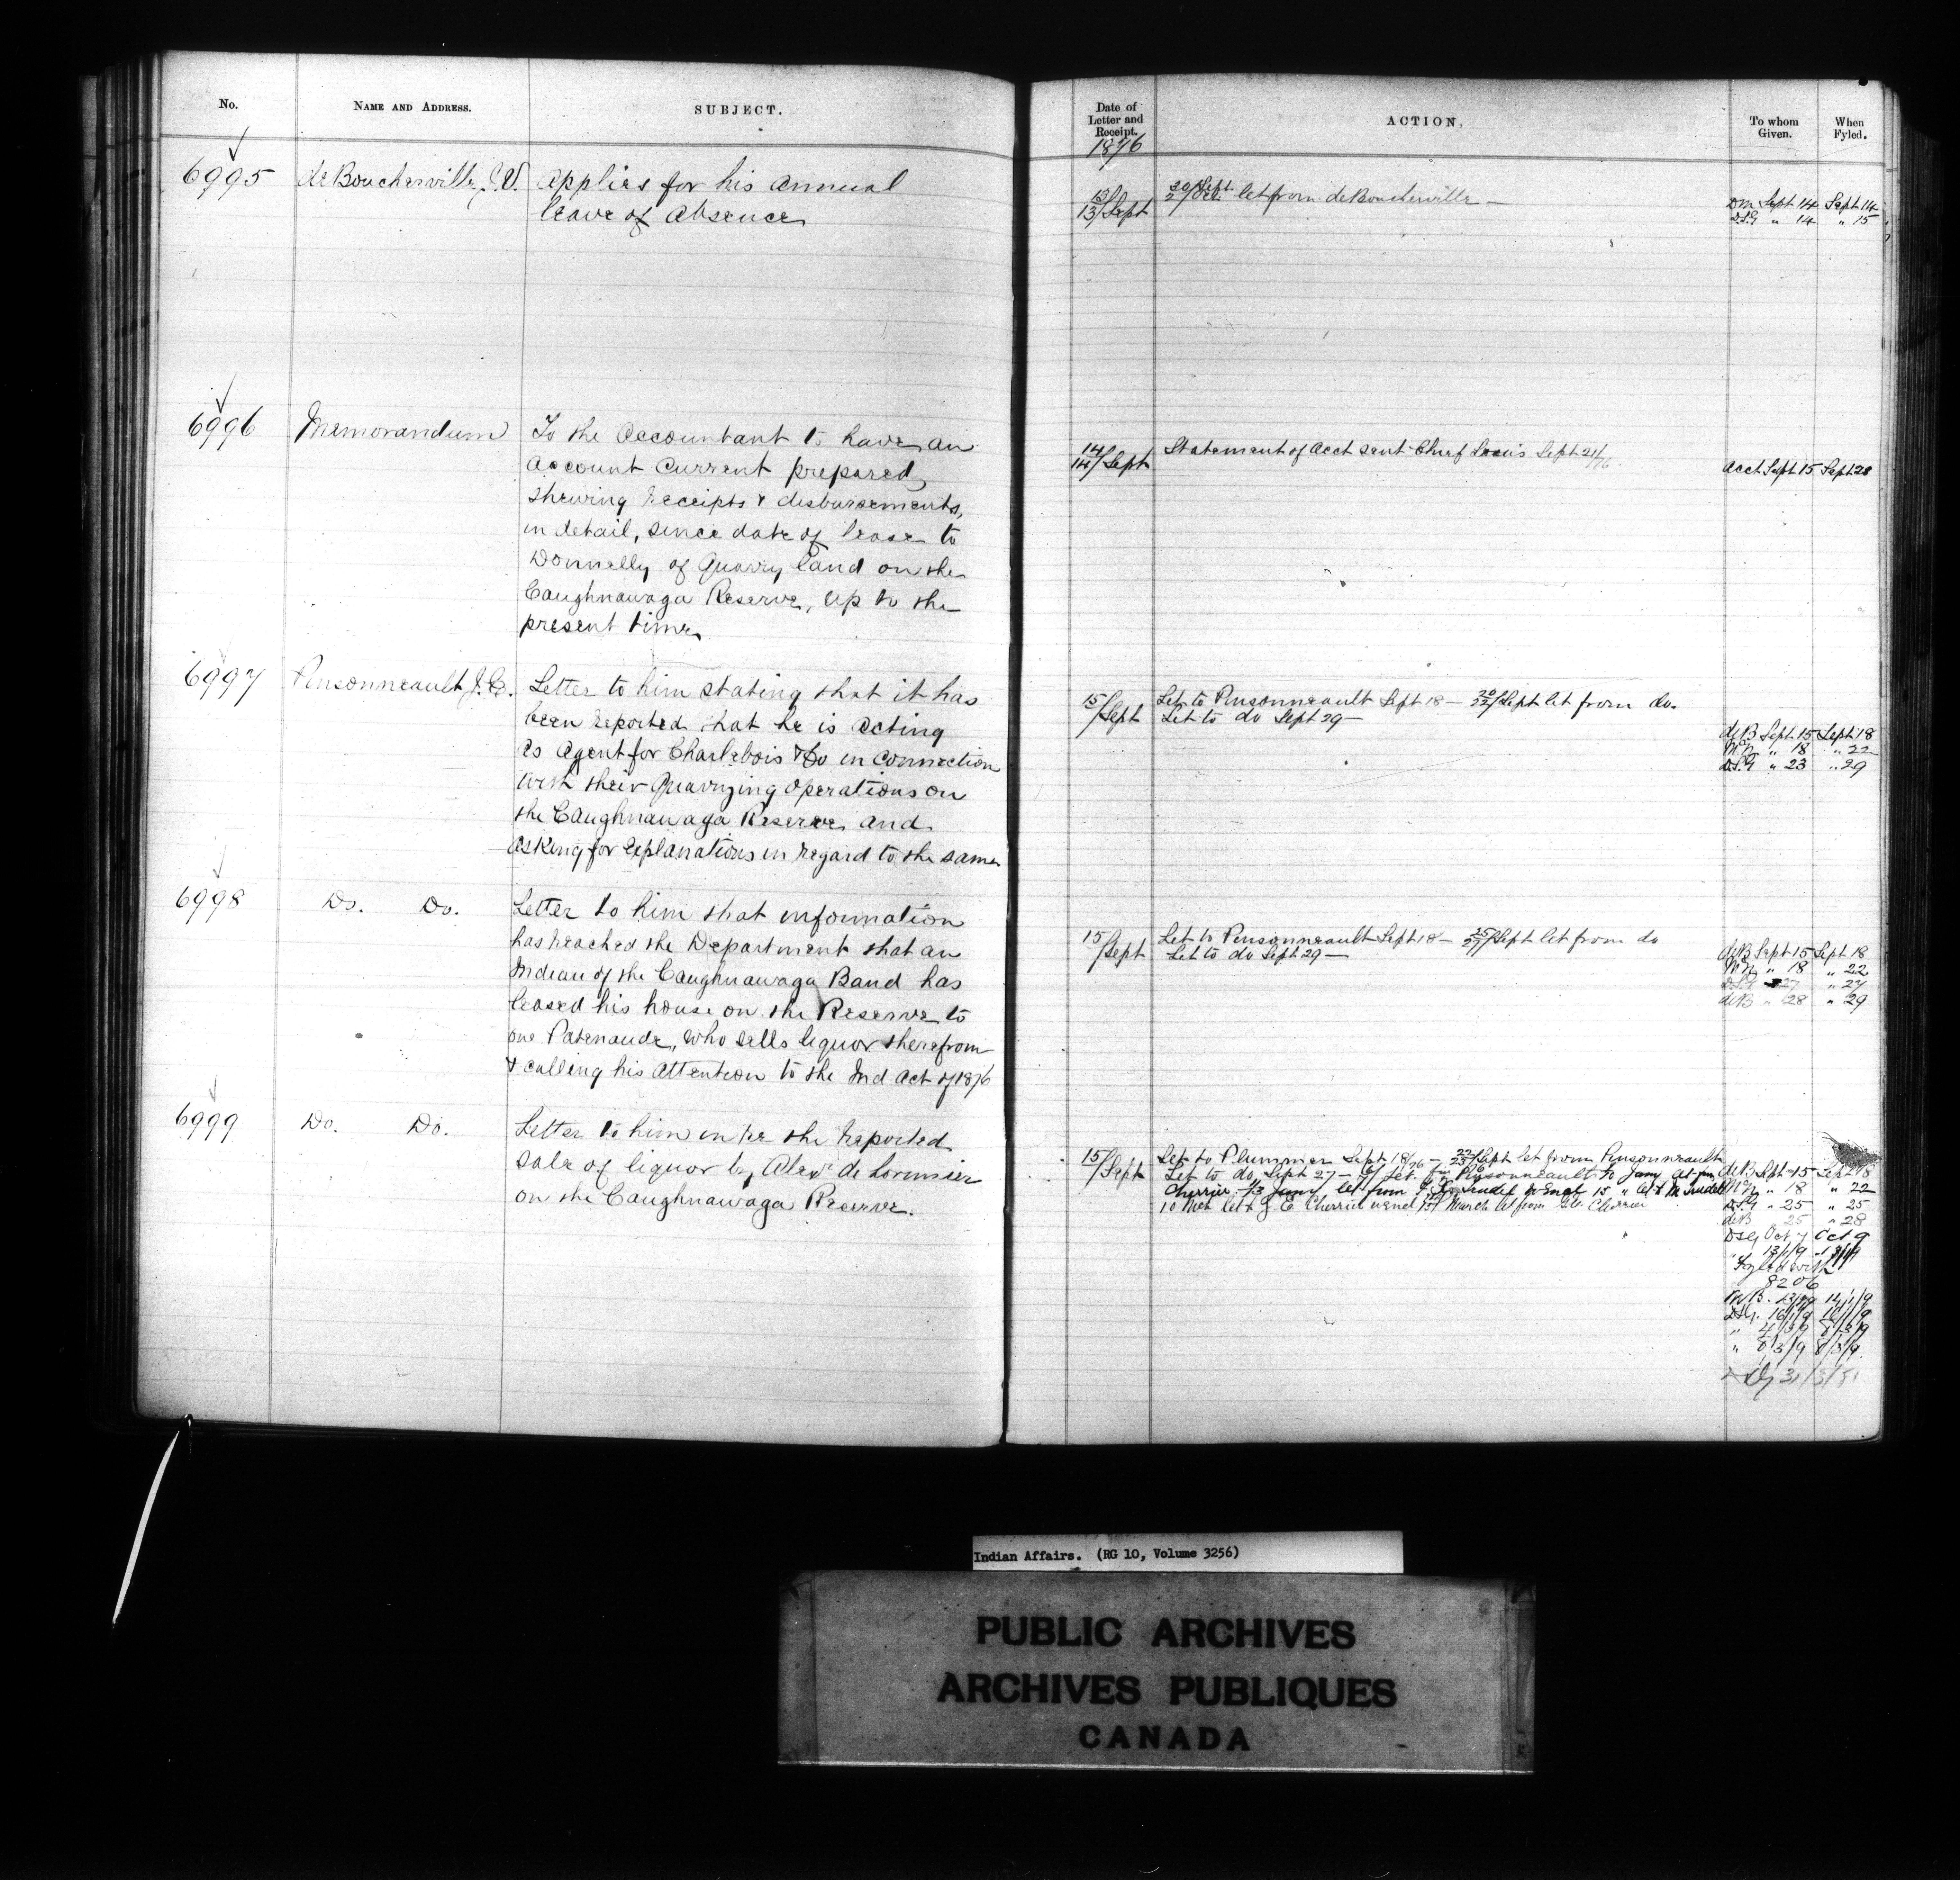 No.
NAME AND ADDRESS.
SUBJECT.
Date of
Letter and
Receipt.
ACTION.
To whom
Given.
When
Fyled.
1876
6995
deBoucherville, C.V.
Applies for his Annual
leave of Absence
13/
13/Sept
30/Sept
2/Oct let from deBoucherville —
DM Sept 14 Sept 14
D.S.G " 14 " 15
6996
Memorandum
To the Accountant to have an
Account Current prepared
shewing receipts & disbursements,
in detail, since date of lease to
Donnelly of Quarry land on the
Caughnawaga Reserve, up to the
present time
14/
14/Sept
Statement of Acct sent Chief Louis Sept 21/76
Acct Sept 15 Sept 28
6997
Pinsonneault, J.E.
Letter to him stating that it has
been reported that he is acting
as Agent for Charlebois & Co in connection
with their Quarrying Operations on
the Caughnawaga Reserve and
asking for Explanations in regard to the same
15/
/Sept
Let to Pinsonneault Sept 18 — 20/22/Sept let from do.
Let to do Sept 29 —
deB Sept 15 Sept 18
" 18 " 22
D.S.G " 23 " 29
6998
Do. Do.
Letter to him that information
has reached the Department that an
Indian of the Caughnawaga Band has
leased his house on the Reserve to
one Patenaude, who sells liquor therefrom
& calling his Attention to the Ind Act of 1876
15/
/Sept
Let to Pinsonneault Sept 18 — 25/27/Sept let from do
Let to do Sept 29 —
deB Sept 15 Sept 18
" 18 " 22
D.S.G 27 " 27
deB " 28 " 29
6999
Do. Do.
Letter to him in re the reported
sale of liquor by Alexr de Lorimier
on the Caughnawaga Reserve.
15/
/Sept
Let to Plummer Sept 18/76 — 22/25/Sept let from Pinsonneault
Let to do Sept 27 — Pinsonneault
Cherrier let from
10 March from Cherrier
deB Sept 15 Sept 18
" 18 " 22
D.S.G " 25 " 25
deB 25 " 28
DSG Oct 7 Oct 9
Fyled with
8206
" 8/3/9 8/3/9
31/3/81
Indian Affairs. (RG 10, Volume 3256)
PUBLIC ARCHIVES
ARCHIVES PUBLIQUES
CANADA